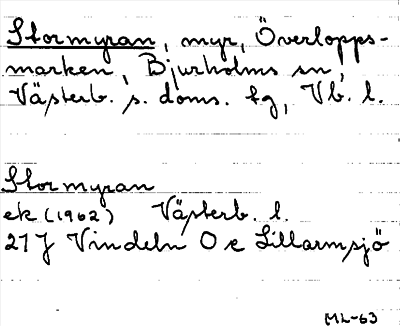 Stormyran, myr, Överlopps-
marken, Bjurholms sn,
Västerb. s. doms. tg, Vb. l.
Stormyran
ek (1962) Västerb. l.
21 J Vindeln O c Lillarmsjö
ML-63